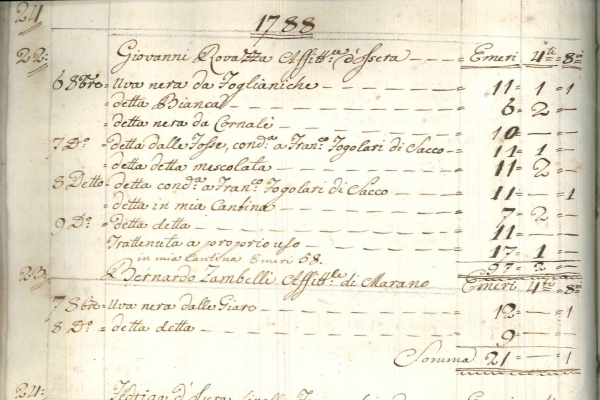 24
1788
22: Giovanni Rovazza Affitt.ra d'Isera — Emeri 4.ti 8.ni
6 8bre = Uva nera da Foglianiche — = 11 = 1 = 1
= detta Bianca — = 6 = 2 =
= detta nera da Cornalè — = 10 — =
7 D.o = detta dalle Fosse, cond.a a Fran.co Fogolari di Sacco = 11 = 1 =
= detta detta mescolata — = 11 = 2 =
8 Detto = detta cond.a a Fran.co Fogolari di Sacco — = 11 = — = 1
= detta in mia Cantina — = 7 = 2 =
9 D.o = detta detta — = 11 = — =
Trattenuta a proprio uso — = 17 = 1 =
in mia Cantina Emeri 58. = 97 = 2 =
23: Bernardo Zambelli Affitt.le di Marano Emeri 4.ti 8.ni
7 8bre = Uva nera dalle Giare — = 12 = — = 1
8 D.o = detta detta — = 9 = — =
Somma 21 = — = 1
24: